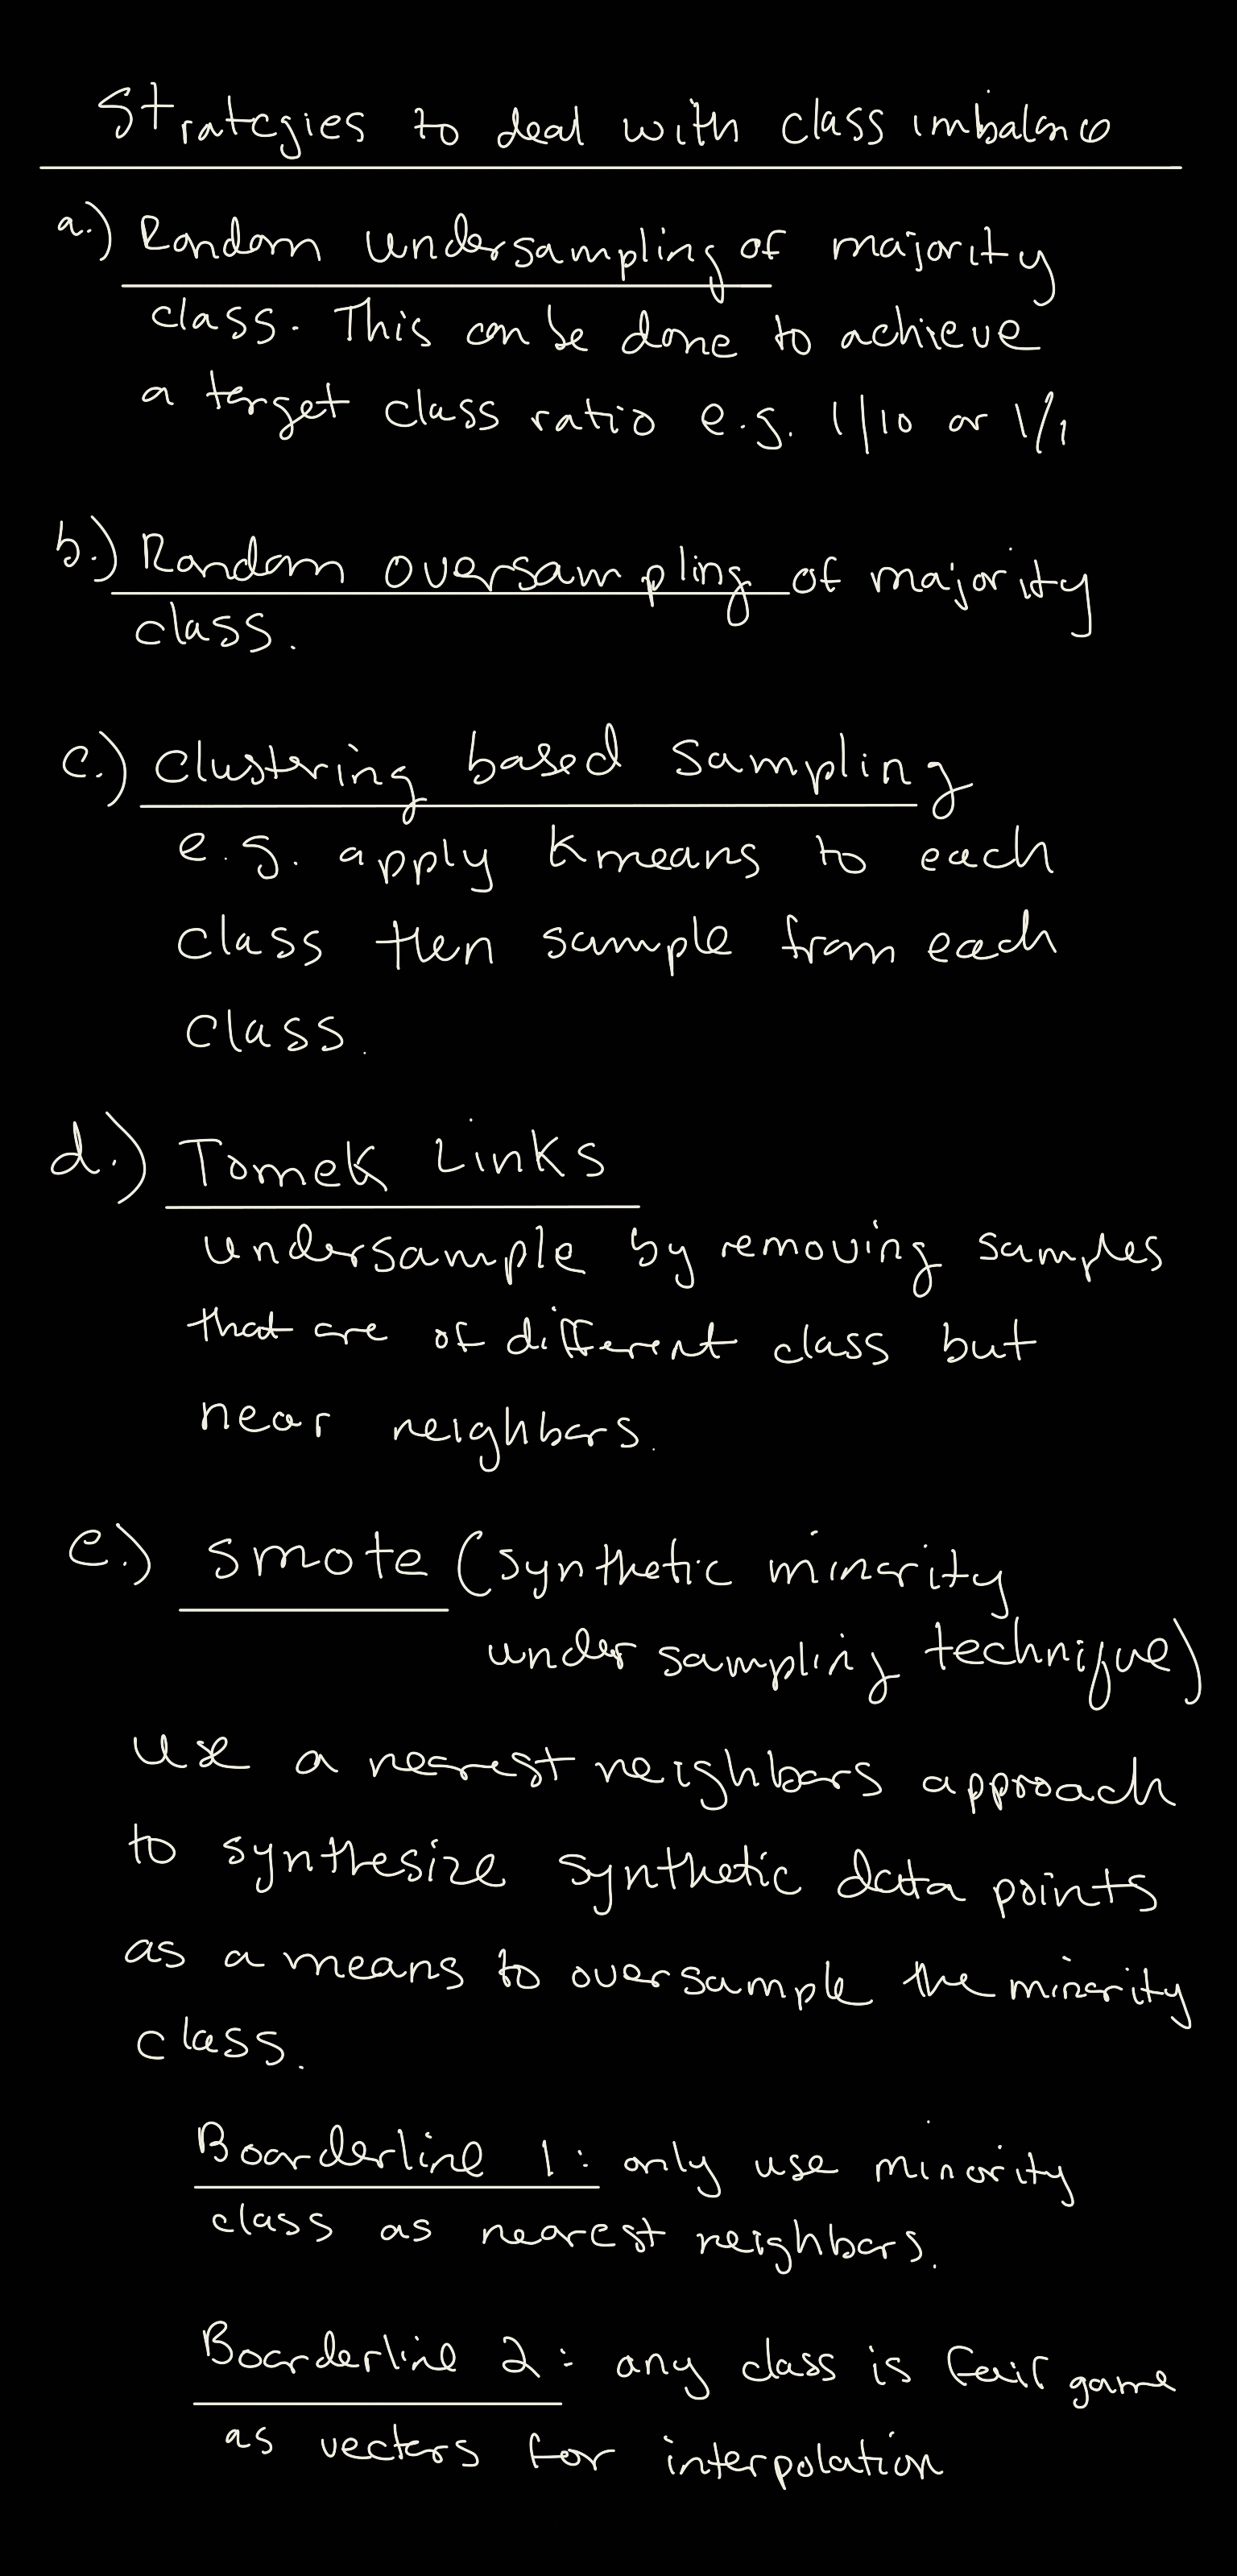 Strategies to deal with class imbalance
a.) Random undersampling of majority
class. This can be done to achieve
a target class ratio e.g. 1/10 or 1/1
b.) Random oversampling of majority
class.
c.) Clustering based sampling
e.g. apply Kmeans to each
class then sample from each
class.
d.) Tomek Links
undersample by removing samples
that are of different class but
near neighbors.
e.) smote (synthetic minority
under sampling technique)
use a nearest neighbors approach
to synthesize synthetic data points
as a means to oversample the minority
class.
Boarderline 1: only use minority
class as nearest neighbors.
Boarderline 2: any class is fair game
as vectors for interpolation